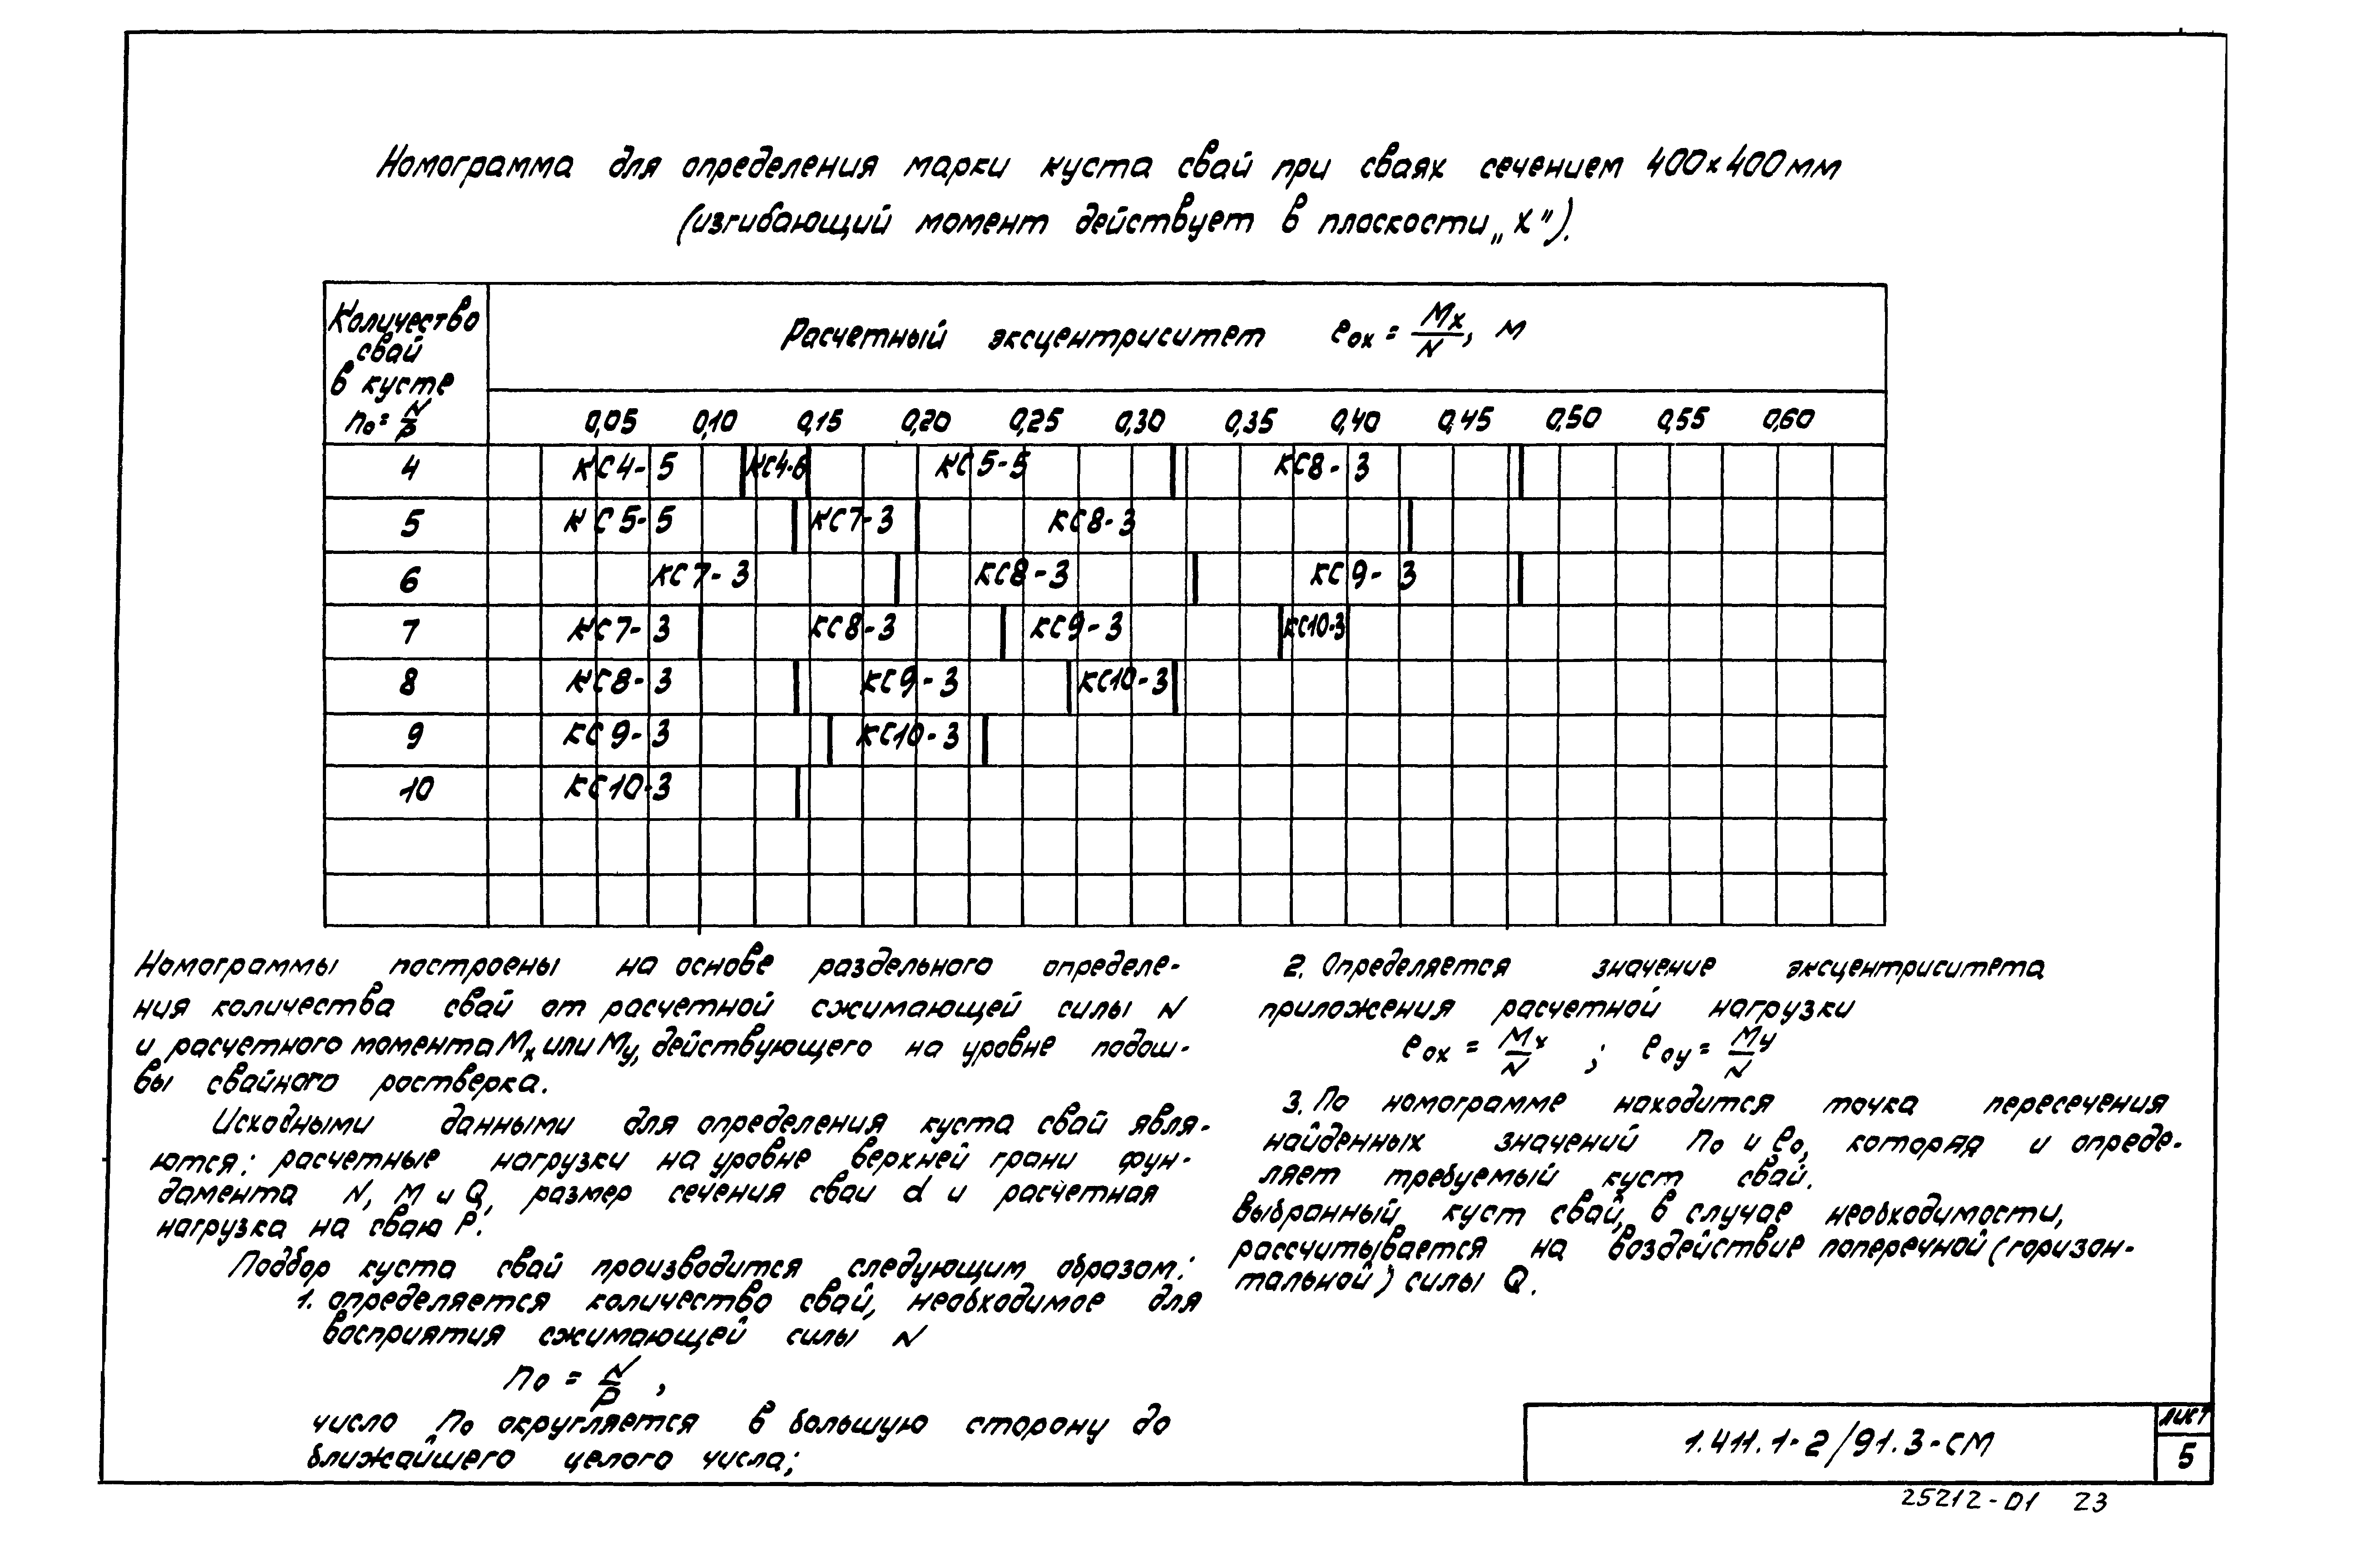 Номограмма для определения марки куста свай при сваях сечением 400×400мм
(изгибающий момент действует в плоскости „X").
Количество
свай
в кусте
n₀ = N/P
Расчетный эксцентриситет eох = Mx/N, м
0,05 0,10 0,15 0,20 0,25 0,30 0,35 0,40 0,45 0,50 0,55 0,60
4 КС4-5 КС4-6 КС5-5 КС8-3
5 КС5-5 КС7-3 КС8-3
6 КС7-3 КС8-3 КС9-3
7 КС7-3 КС8-3 КС9-3 КС10-3
8 КС8-3 КС9-3 КС10-3
9 КС9-3 КС10-3
10 КС10-3
Номограммы построены на основе раздельного определе-
ния количества свай от расчетной сжимающей силы N
и расчетного момента Mx или My, действующего на уровне подош-
вы свайного ростверка.
Исходными данными для определения куста свай явля-
ются: расчетные нагрузки на уровне верхней грани фун-
дамента N, M и Q, размер сечения сваи d и расчетная
нагрузка на сваю P.
Подбор куста свай производится следующим образом:
1. определяется количество свай, необходимое для
восприятия сжимающей силы N
n₀ = N/P ,
число n₀ округляется в большую сторону до
ближайшего целого числа;
2. Определяется значение эксцентриситета
приложения расчетной нагрузки
eох = Mx/N ; eоy = My/N
3. По номограмме находится точка пересечения
найденных значений n₀ и e₀, которая и опреде-
ляет требуемый куст свай.
Выбранный куст свай, в случае необходимости,
рассчитывается на воздействие поперечной (горизон-
тальной) силы Q.
1.411.1-2/91.3-СМ
Лист
5
25212-01 23